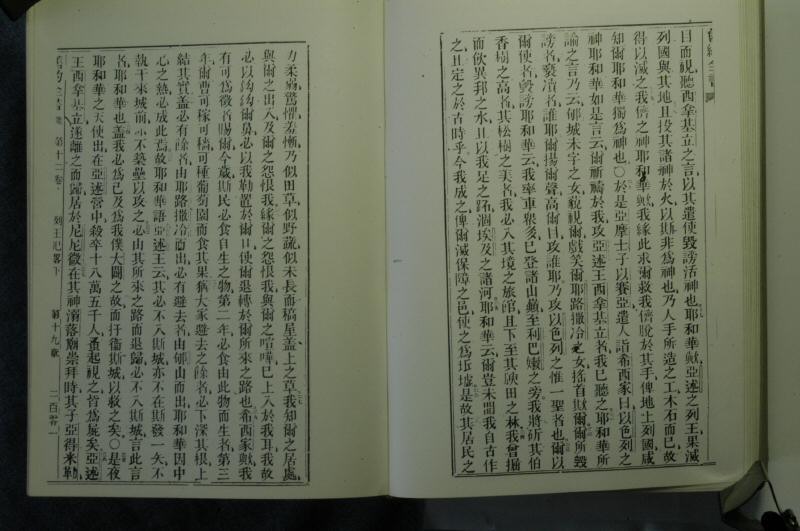 舊約全書
目而視聽西拿基立之言以其遣使毀謗活神也耶和華歟亞述之列王果滅
列國與其地且投其諸神於火以斯非爲神也乃人手所造之工木石而已故
得以滅之我儕之神耶和華歟我緣此求爾救我儕脫於其手俾地上列國咸
知爾耶和華獨爲神也〇於是亞摩士子以賽亞遣人詣希西家曰以色列之
神耶和華如是言云爾祈禱於我攻亞述王西拿基立者我已聽之耶和華所
論之言乃云郇城未字之女藐視爾戲笑爾耶路撒冷之女搖首欺爾爾所毀
謗者褻瀆者誰耶爾揚爾聲高爾目攻誰耶乃攻以色列之惟一聖者也爾以
爾使者毀謗耶和華云我率車衆多已登諸山巔至利巴嫩之旁我將斫其伯
香樹之高者其松樹之美者我必入其境之旅館且下至其腴田之林我曾掘
而飲異邦之水且以我足之跖涸埃及之諸河耶和華云爾豈未聞我自古作
之且定之於古時乎今我成之俾爾滅保障之邑使之爲坵墟是故其居民之
力柔弱驚懼羞慚乃似田草似野蔬似未長而稿屋蓋上之草我知爾之居處
與爾之出入及爾之怨恨我緣爾之怨恨我與爾之喧嘩已上入於我耳我故
必以鈎鈎爾鼻必以我勒置於爾口使爾退轉於爾所來之路也希西家歟我
有可爲徵者賜爾今歲斯民必食自生之物第二年必食由此物而生者第三
年爾曹可稼可穡可種葡萄園而食其果猶大家避去之餘者必下深其根上
結其實蓋必有餘者由耶路撒冷而出必有避去者由郇山而出耶和華因中
心之熱必成此焉故耶和華語亞述王云其必不入斯城亦不在斯發一矢不
執干來城前亦不築壘以攻之必由其所來之路而退歸必不入斯城言此言
者耶和華也蓋我必爲己及爲我僕大闢之故而扞衞斯城以救之矣〇是夜
耶和華之天使出在亞述營中殺卒十八萬五千人蚤起視之皆爲屍矣亞述
王西拿基立遂離之而歸居於尼尼微在其神
廟崇拜時其子亞得米勒
舊約全書
第十二卷
列王紀畧下
第十九章
二百